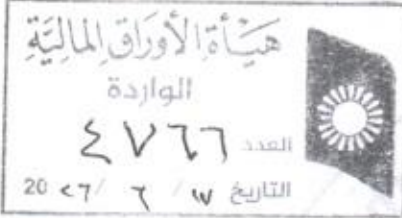 هَيْأَةُ الأَوْرَاقِ المَالِيَّةِ
الواردة
العدد ٤٧٦٦
التاريخ ١٧ / ٦ / ٢٦ 20